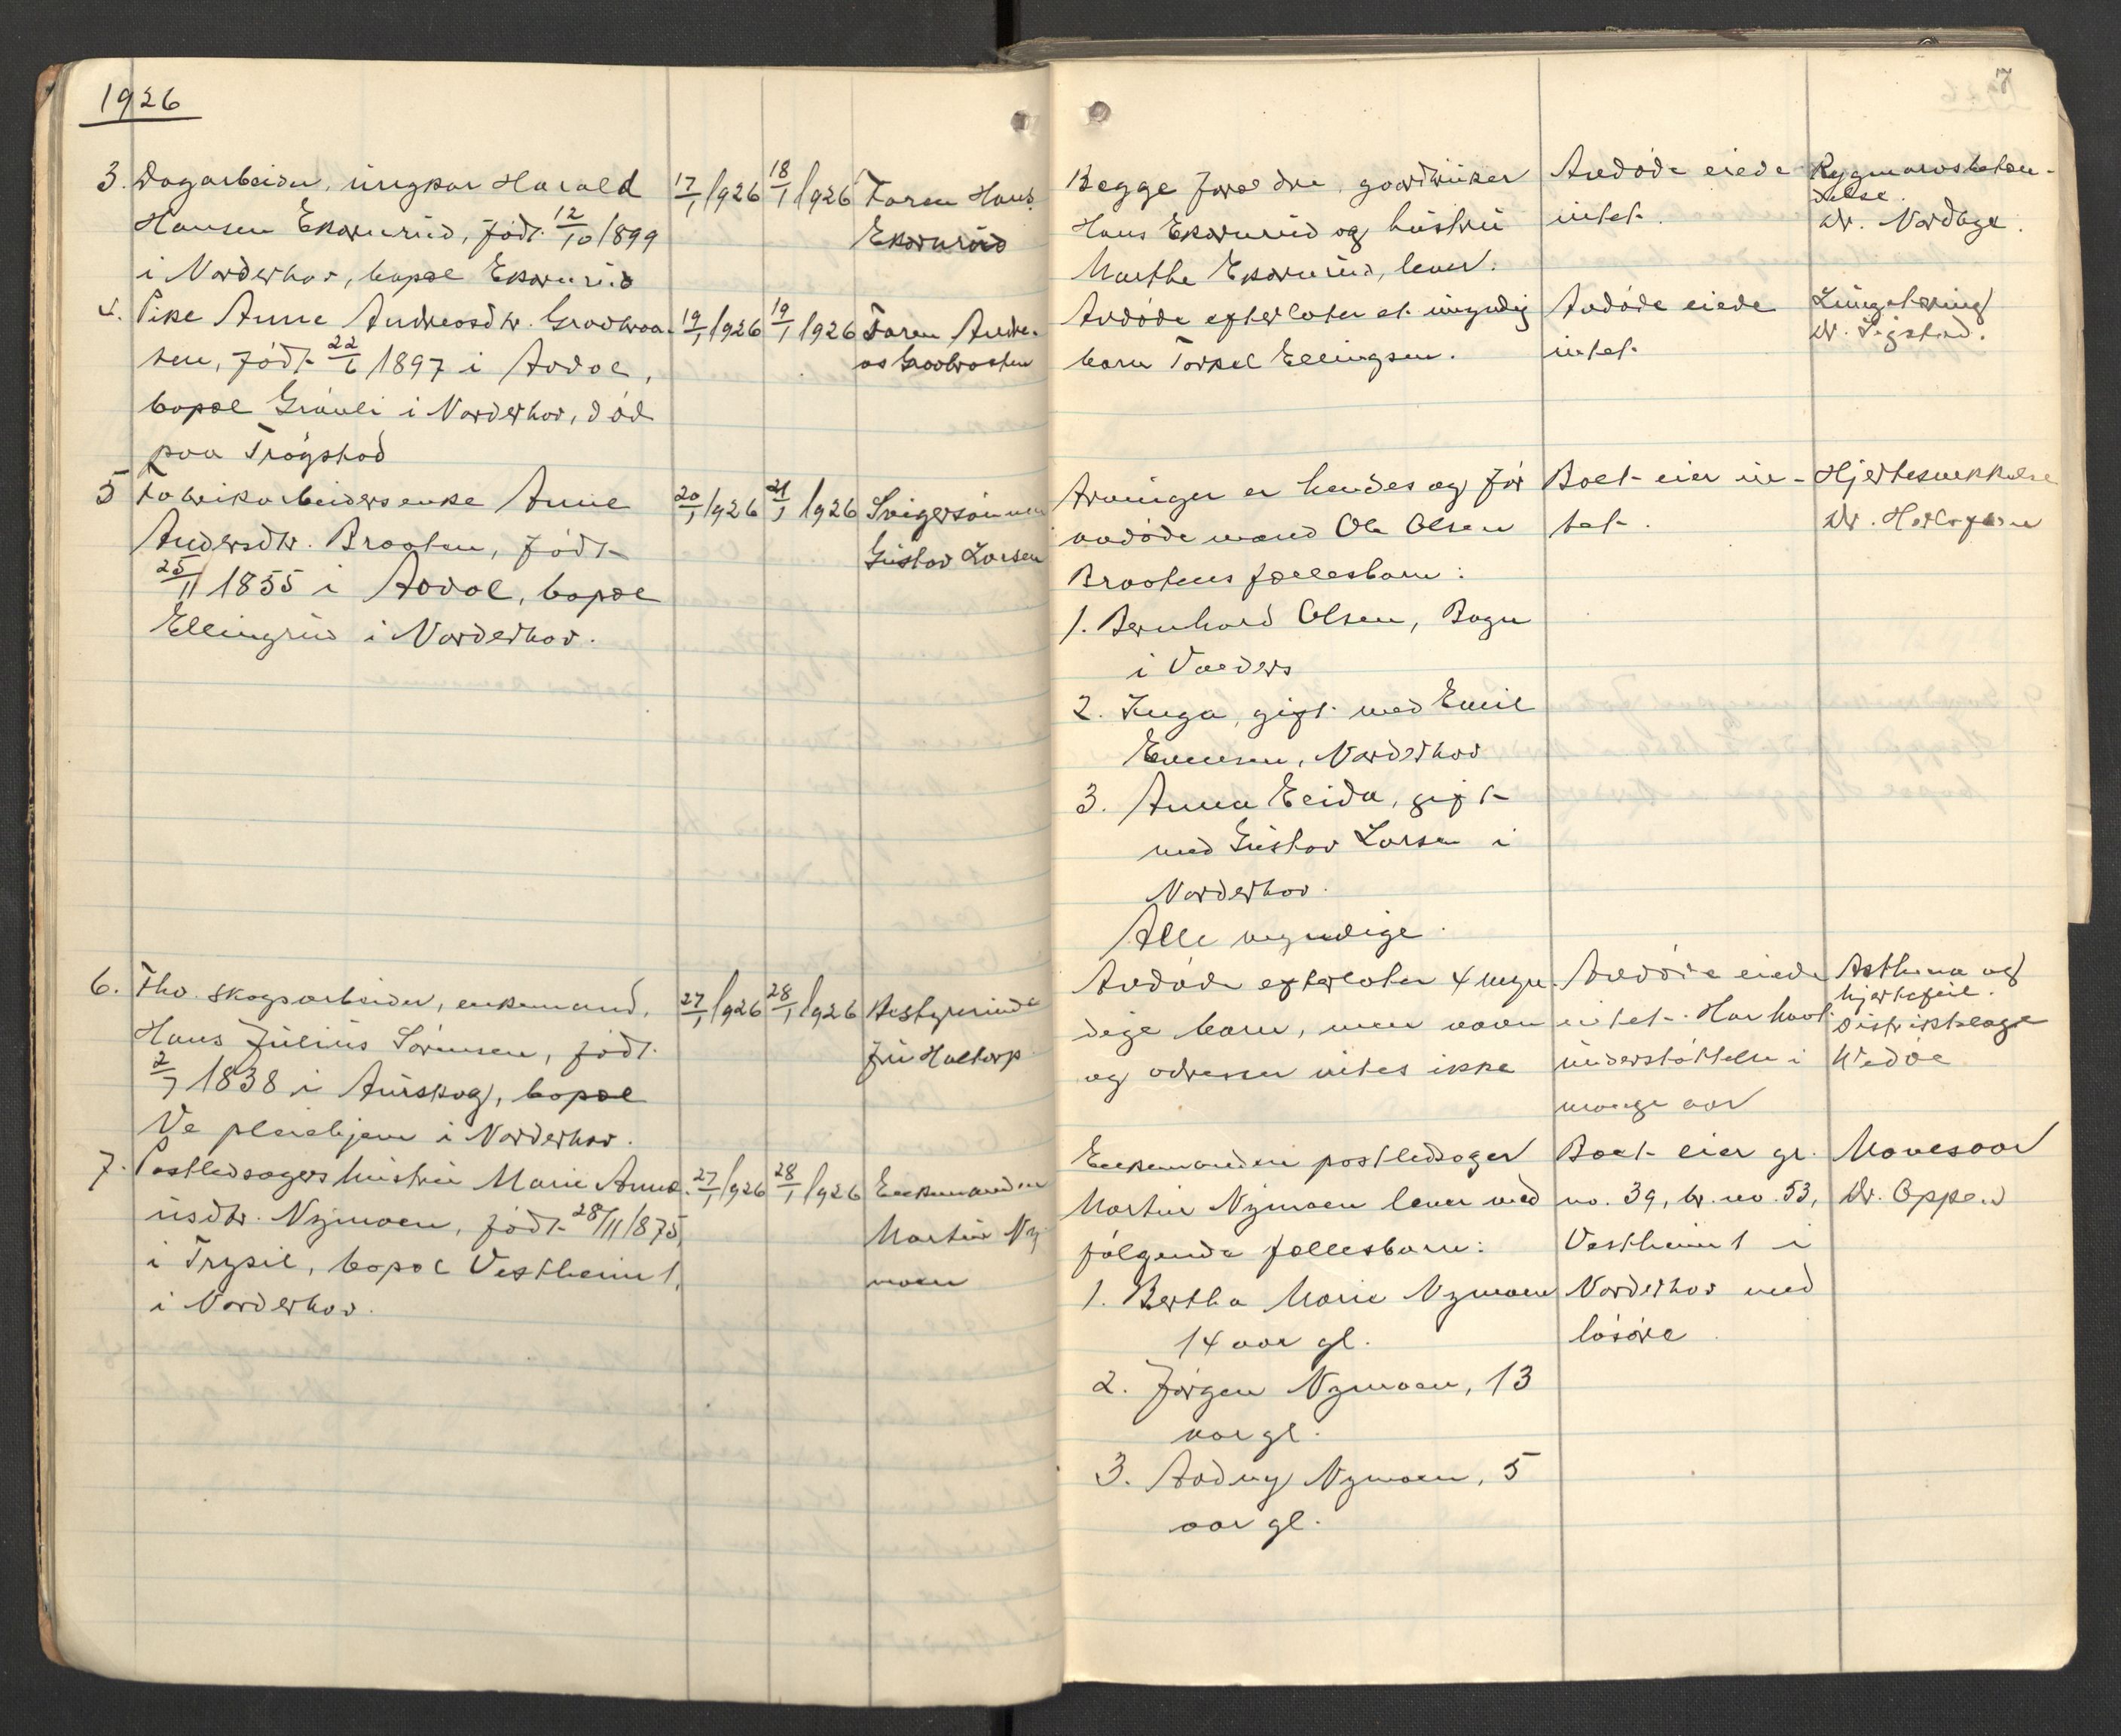 1926
7
3. Dagarbeider, ungkar Harald
Hansen Ekornrud, født 12/10 1899
i Norderhov, bopæl Ekornrud
17/1 1926
18/1 1926
Faren Hans
Ekornrud
Begge foræ dre, gaardbruker
Hans Ekornrud og hustru
Marthe Ekornrud, lever.
Avdøde eiede
intet.
Rygmarvsbeten-
delse.
Dr. Nordbye.
4. Pike Anne Andreasdtr. Graabraa-
ten, født 22/6 1897 i Aadal,
bopæl Grønli i Norderhov, død
paa Trøgstad
19/1 1926
19/1 1926
Faren Andre-
as Graabraaten
Avdøde efterlater et umyndig
barn Torkel Ellingsen.
Avdøde eiede
intet.
Lungetæring
Dr. Sigstad.
5 Fabrikarbeidersenke Anne
Andersdtr. Braaten, født
25/11 1855 i Aadal, bopæl
Ellingrud i Norderhov.
20/1 1926
21/1 1926
Svigersønnen
Gustav Larsen
Arvinger er hendes og før
avdøde mand Ole Olsen
Braatens fællesbarn:
1. Bernhard Olsen, Bagn
i Valders
2. Inga, gift med Emil
Evensen, Norderhov
3. Anna Elida, gift
med Gustav Larsen i
Norderhov.
Alle myndige.
Boet eier in-
tet.
Hjertesvekkelse
Dr.
6. Fhv. skogsarbeider, enkemand,
Hans Julius Sørensen, født
2/7 1838 i Aurskog, bopæl
Ve pleiehjem i Norderhov.
27/1 1926
28/1 1926
Bestyrerinde
fru Haltorp
Avdøde efterlater 4 myn
dige barn, men navn
og adresser vites ikke
Avdøde eiede
intet. Har hat
understøttelse i
mange aar
Asthma og
hjertefeil.
Distriktslæge
Wedøe
7. Postledsagers hustru Marie Amund-
usdtr. Nymoen, født 28/11 1875,
i Trysil, bopæl Vestheim 1,
i Norderhov.
27/1 1926
28/1 1926
Enkemanden
Martin Ny
moen
Enkemanden postledsager
Martin Nymoen lever med
følgende fællesbarn:
1. Bertha Marie Nymoen
14 aar gl.
2. Jørgen Nymoen, 13
aar gl.
3. Aadny Nymoen, 5
aar gl.
Boet eier gr.
no. 39, br. no. 53,
Vestheim 1 i
Norderhov med
løsøre
Mavesaar
Dr. Oppen